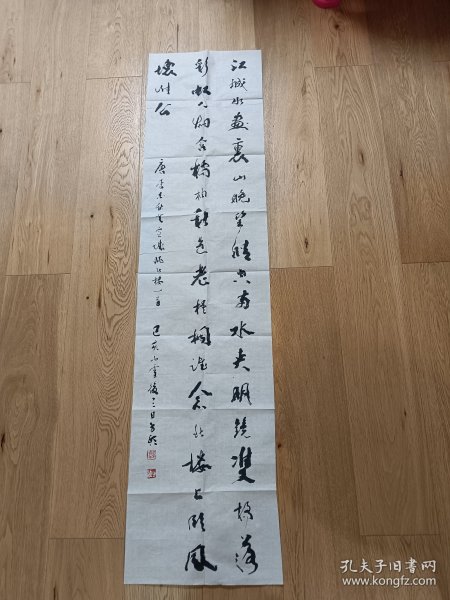 江城如畫裏山晚望晴空兩水夾明鏡雙橋落
彩虹人烟寒橘柚秋色老梧桐誰念北樓上臨風
懷謝公
唐李白秋登宣城謝朓北樓一首 己亥小雪後三日
孔夫子旧书网
www.kongfz.com